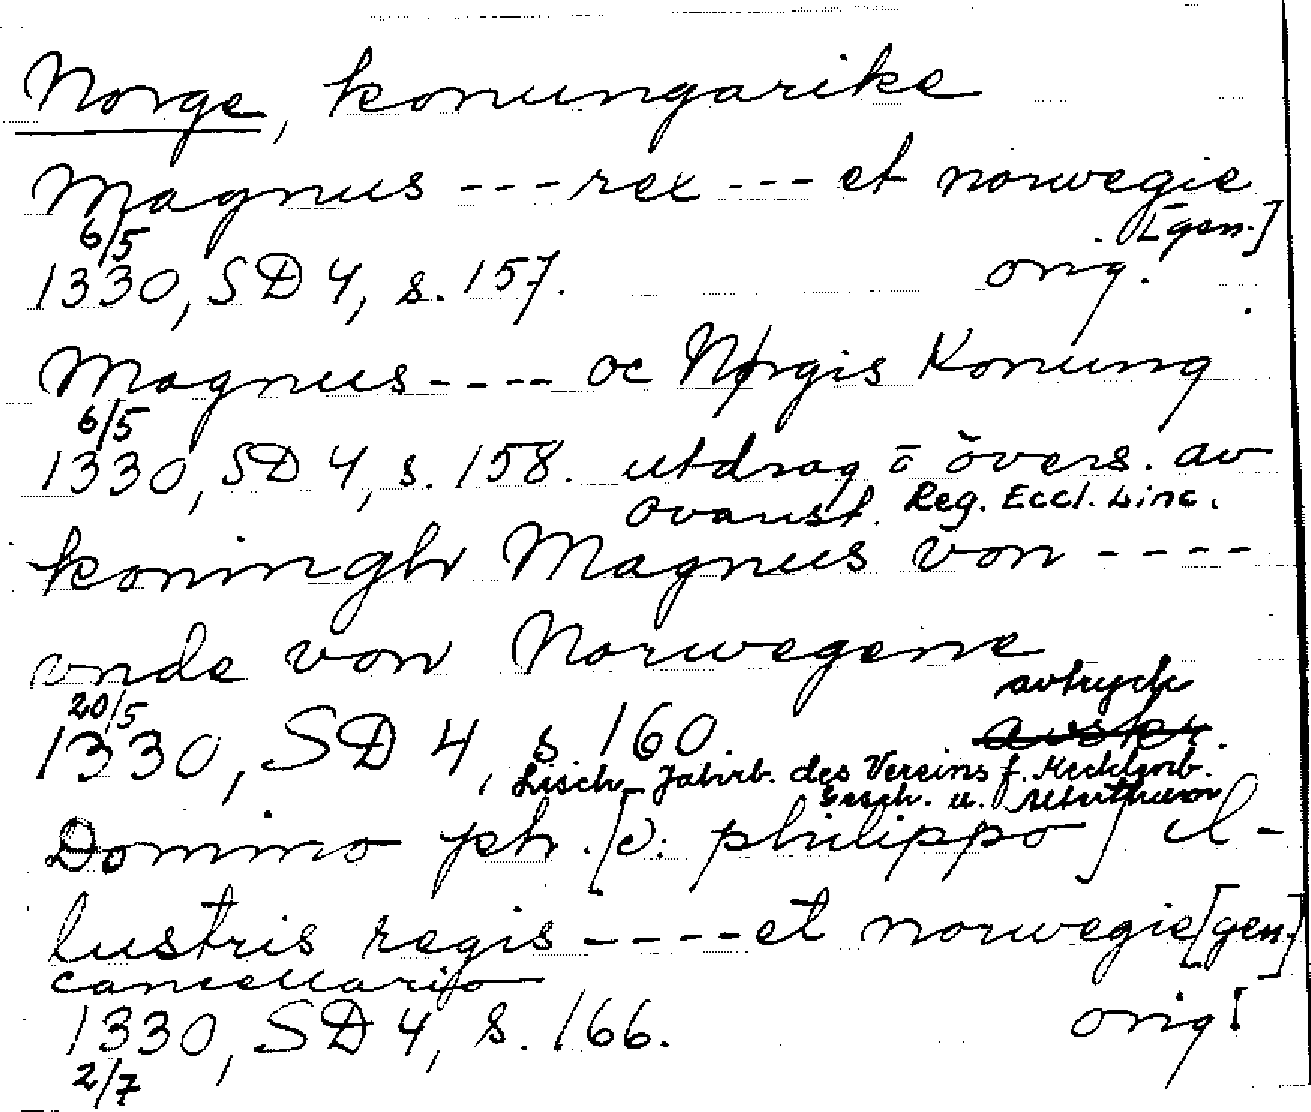 Norge, konungarike
Magnus --- rex --- et norwegie
[gen.]
6/5
1330, SD 4, s. 157. orig.
Magnus ---- oc Nørgis Konung
6/5
1330, SD 4, s. 158. utdrag o övers. av
ovanst. Reg. Eccl. Linc.
koningh Magnus von ----
vnde von Norwegene
20/5 avtryck
1330, SD 4, s. 160. avskr.
Lisch, Jahrb. des Vereins f. Mecklenb.
Gesch. u. Alterthum
Domino ph. [ɔ: philippo] il-
lustris regis ---- et norwegie [gen.]
cancellario
1330, SD 4, s. 166. orig.
2/7